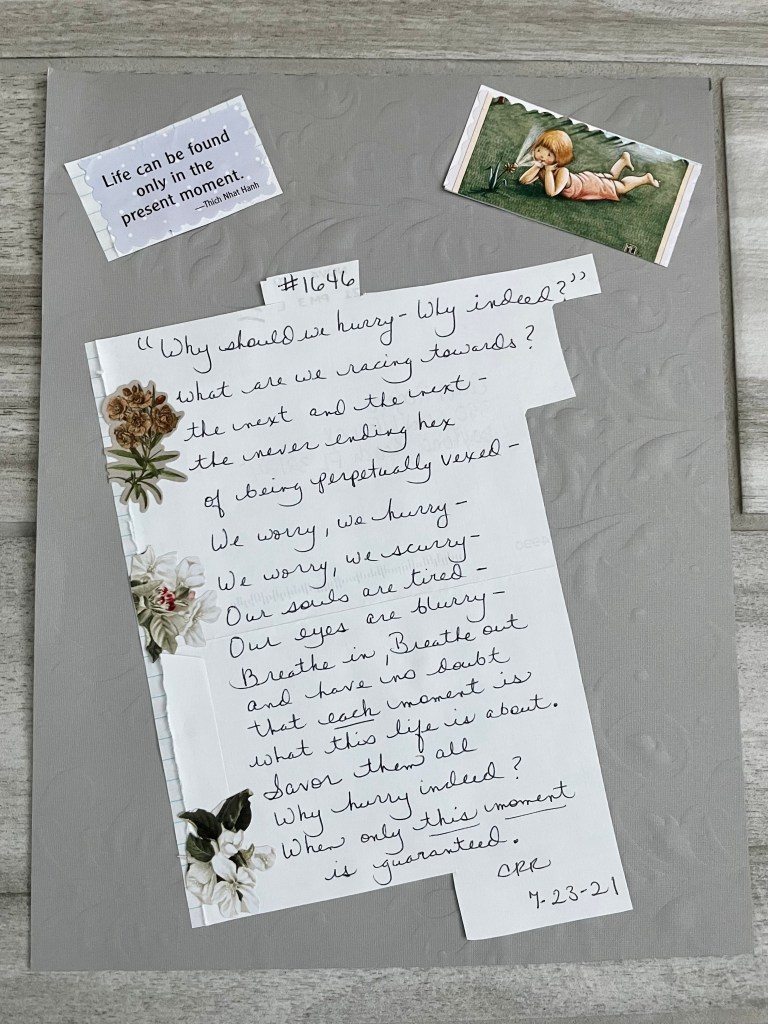 Life can be found
only in the
present moment.
—Thich Nhat Hanh
#1646
"Why should we hurry - Why indeed?"
what are we racing towards?
the next and the next -
the never ending hex
of being perpetually vexed -
We worry, we hurry -
We worry, we scurry -
Our souls are tired -
Our eyes are blurry -
Breathe in, Breathe out
and have no doubt
that each moment is
what this life is about.
Savor them all
Why hurry indeed?
When only this moment
is guaranteed.
CRR
7-23-21